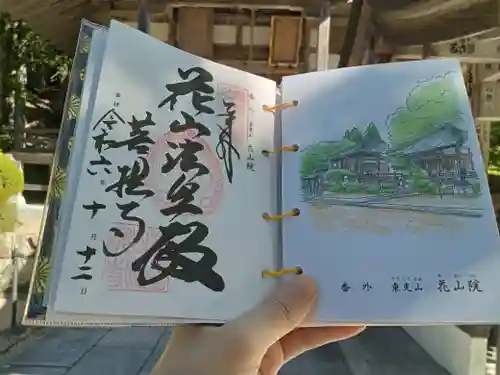 奉拝
花山法皇殿
菩提寺
令和六年十月十二日
番外 東光山 花山院